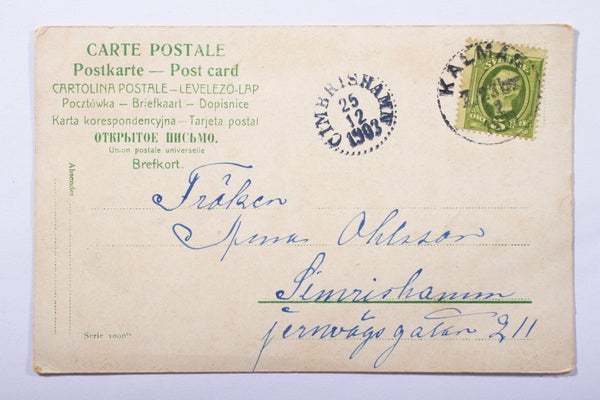 CARTE POSTALE
Postkarte — Post card
CARTOLINA POSTALE — LEVELEZŐ-LAP
Pocztówka — Briefkaart — Dopisnice
Karta korespondencyjna — Tarjeta postal
ОТКРЫТОЕ ПИСЬМО.
Union postale universelle
Brefkort.
Absender
CIMBRISHAMN
25
12
1903
KALMAR
Fröken
Anna Ohlsson
Simrishamn
jernvägsgatan 211
Serie 1000